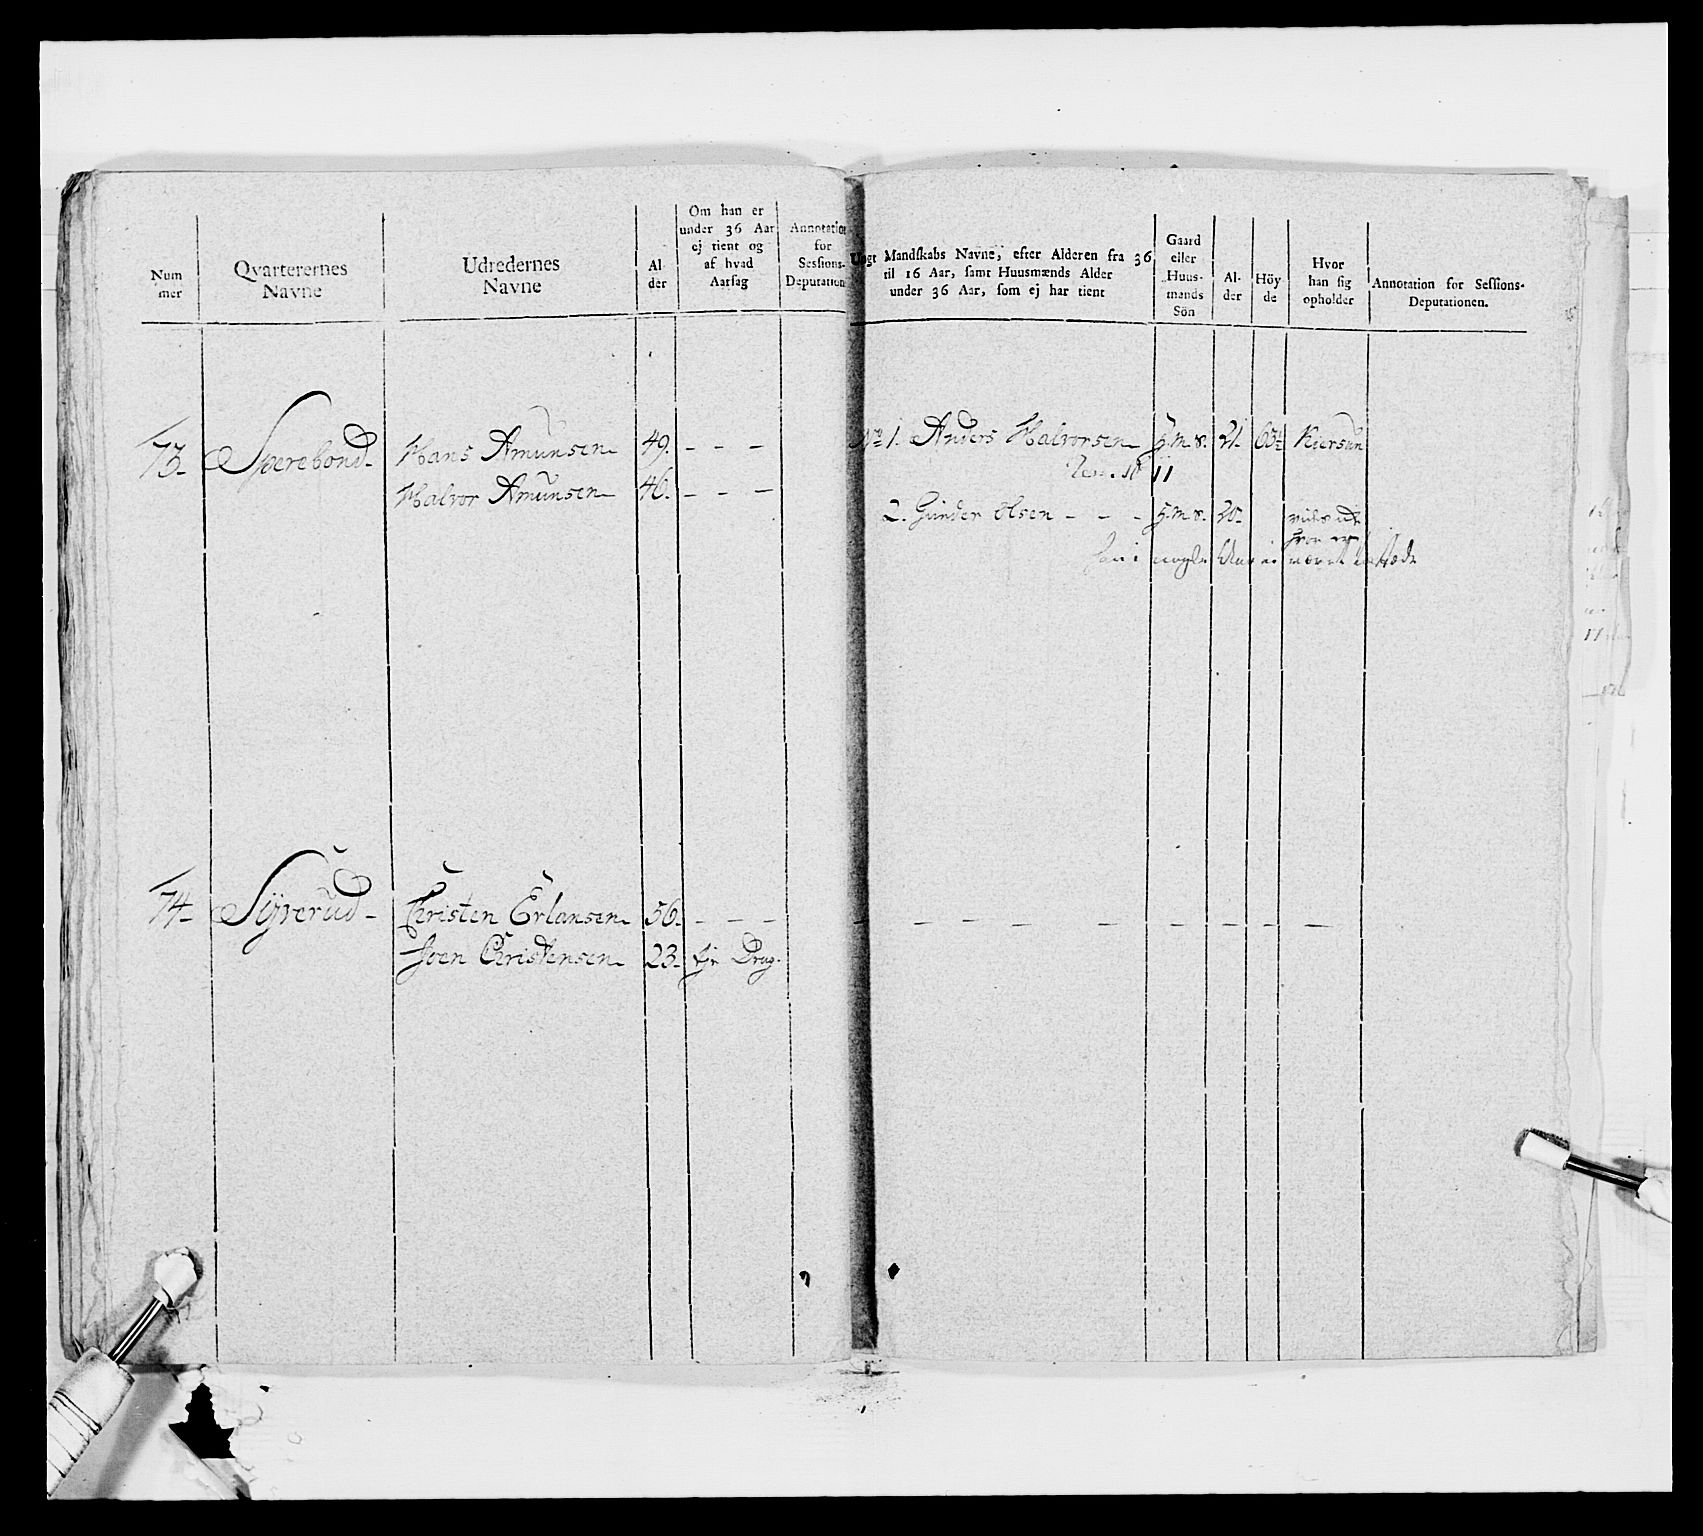 Num
mer
Qvarterernes
Navne
Udredernes
Navne
Al-
der
Om han er
under 36 Aar
ej tient og
af hvad
Aarsag
Annotation
for
Sessions-
Deputation
Ungt Mandskabs Navne, efter Alderen fra 36
til 16 Aar, samt Huusmænds Alder
under 36 Aar, som ej har tient
Gaard
eller
Huus-
mands
Sön
Al-
der
Höy-
de
Hvor
han sig
opholder
Annotation for Sessions-
Deputationen.
73. Sperebond Hans Amunsen 49. - - - No 1. Anders Halvorsen h.m.s. 21. Kiersun
Halvor Amunsen 46. - - -
2. Gunder Olsen - - - h.m.s. 20.
nogle Aar ei været
74. Syverud Christen Erlansen 56. - - - - - - - - - - - -
Joen Christensen 23. Ejer Brug.